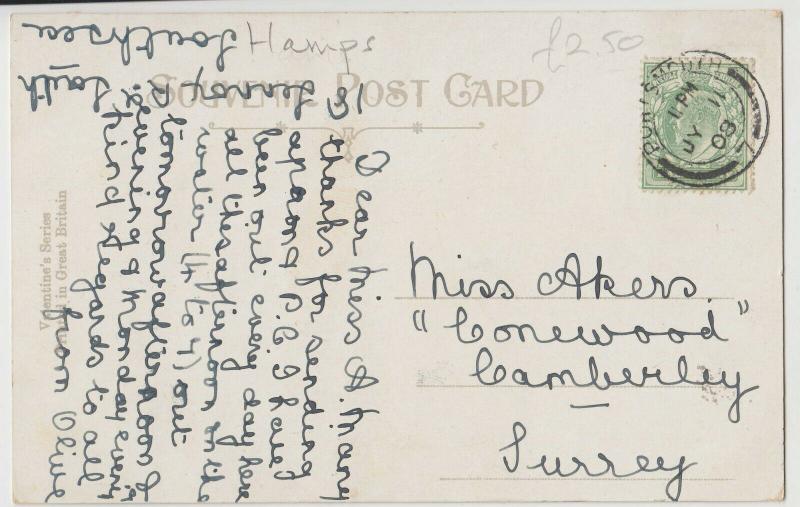 Hamps
£2.50
SOUVENIR POST CARD
PORTSMOUTH
11 PM
JY 11
08
7
Southsea
Dear Miss A. Many
thanks for sending
apron & P.C. I have
been out every day here
all the afternoon on the
water (4 to 7) out
tomorrow afternoon &
evening & Monday every
Kind regards to all
from Olive
Miss Akers.
"Conewood"
Camberley
Surrey
Valentine's Series
Printed in Great Britain